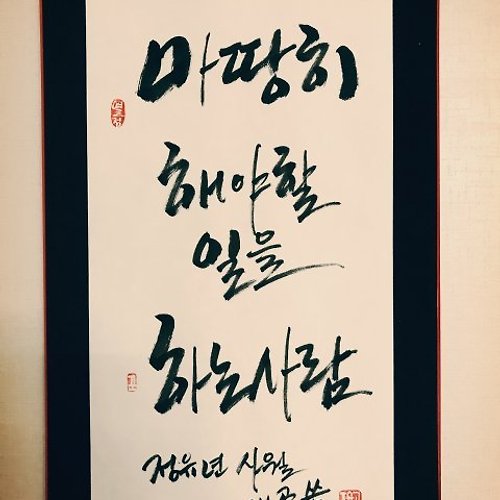 마땅히
해야할
일을
하는사람
정유년 사월